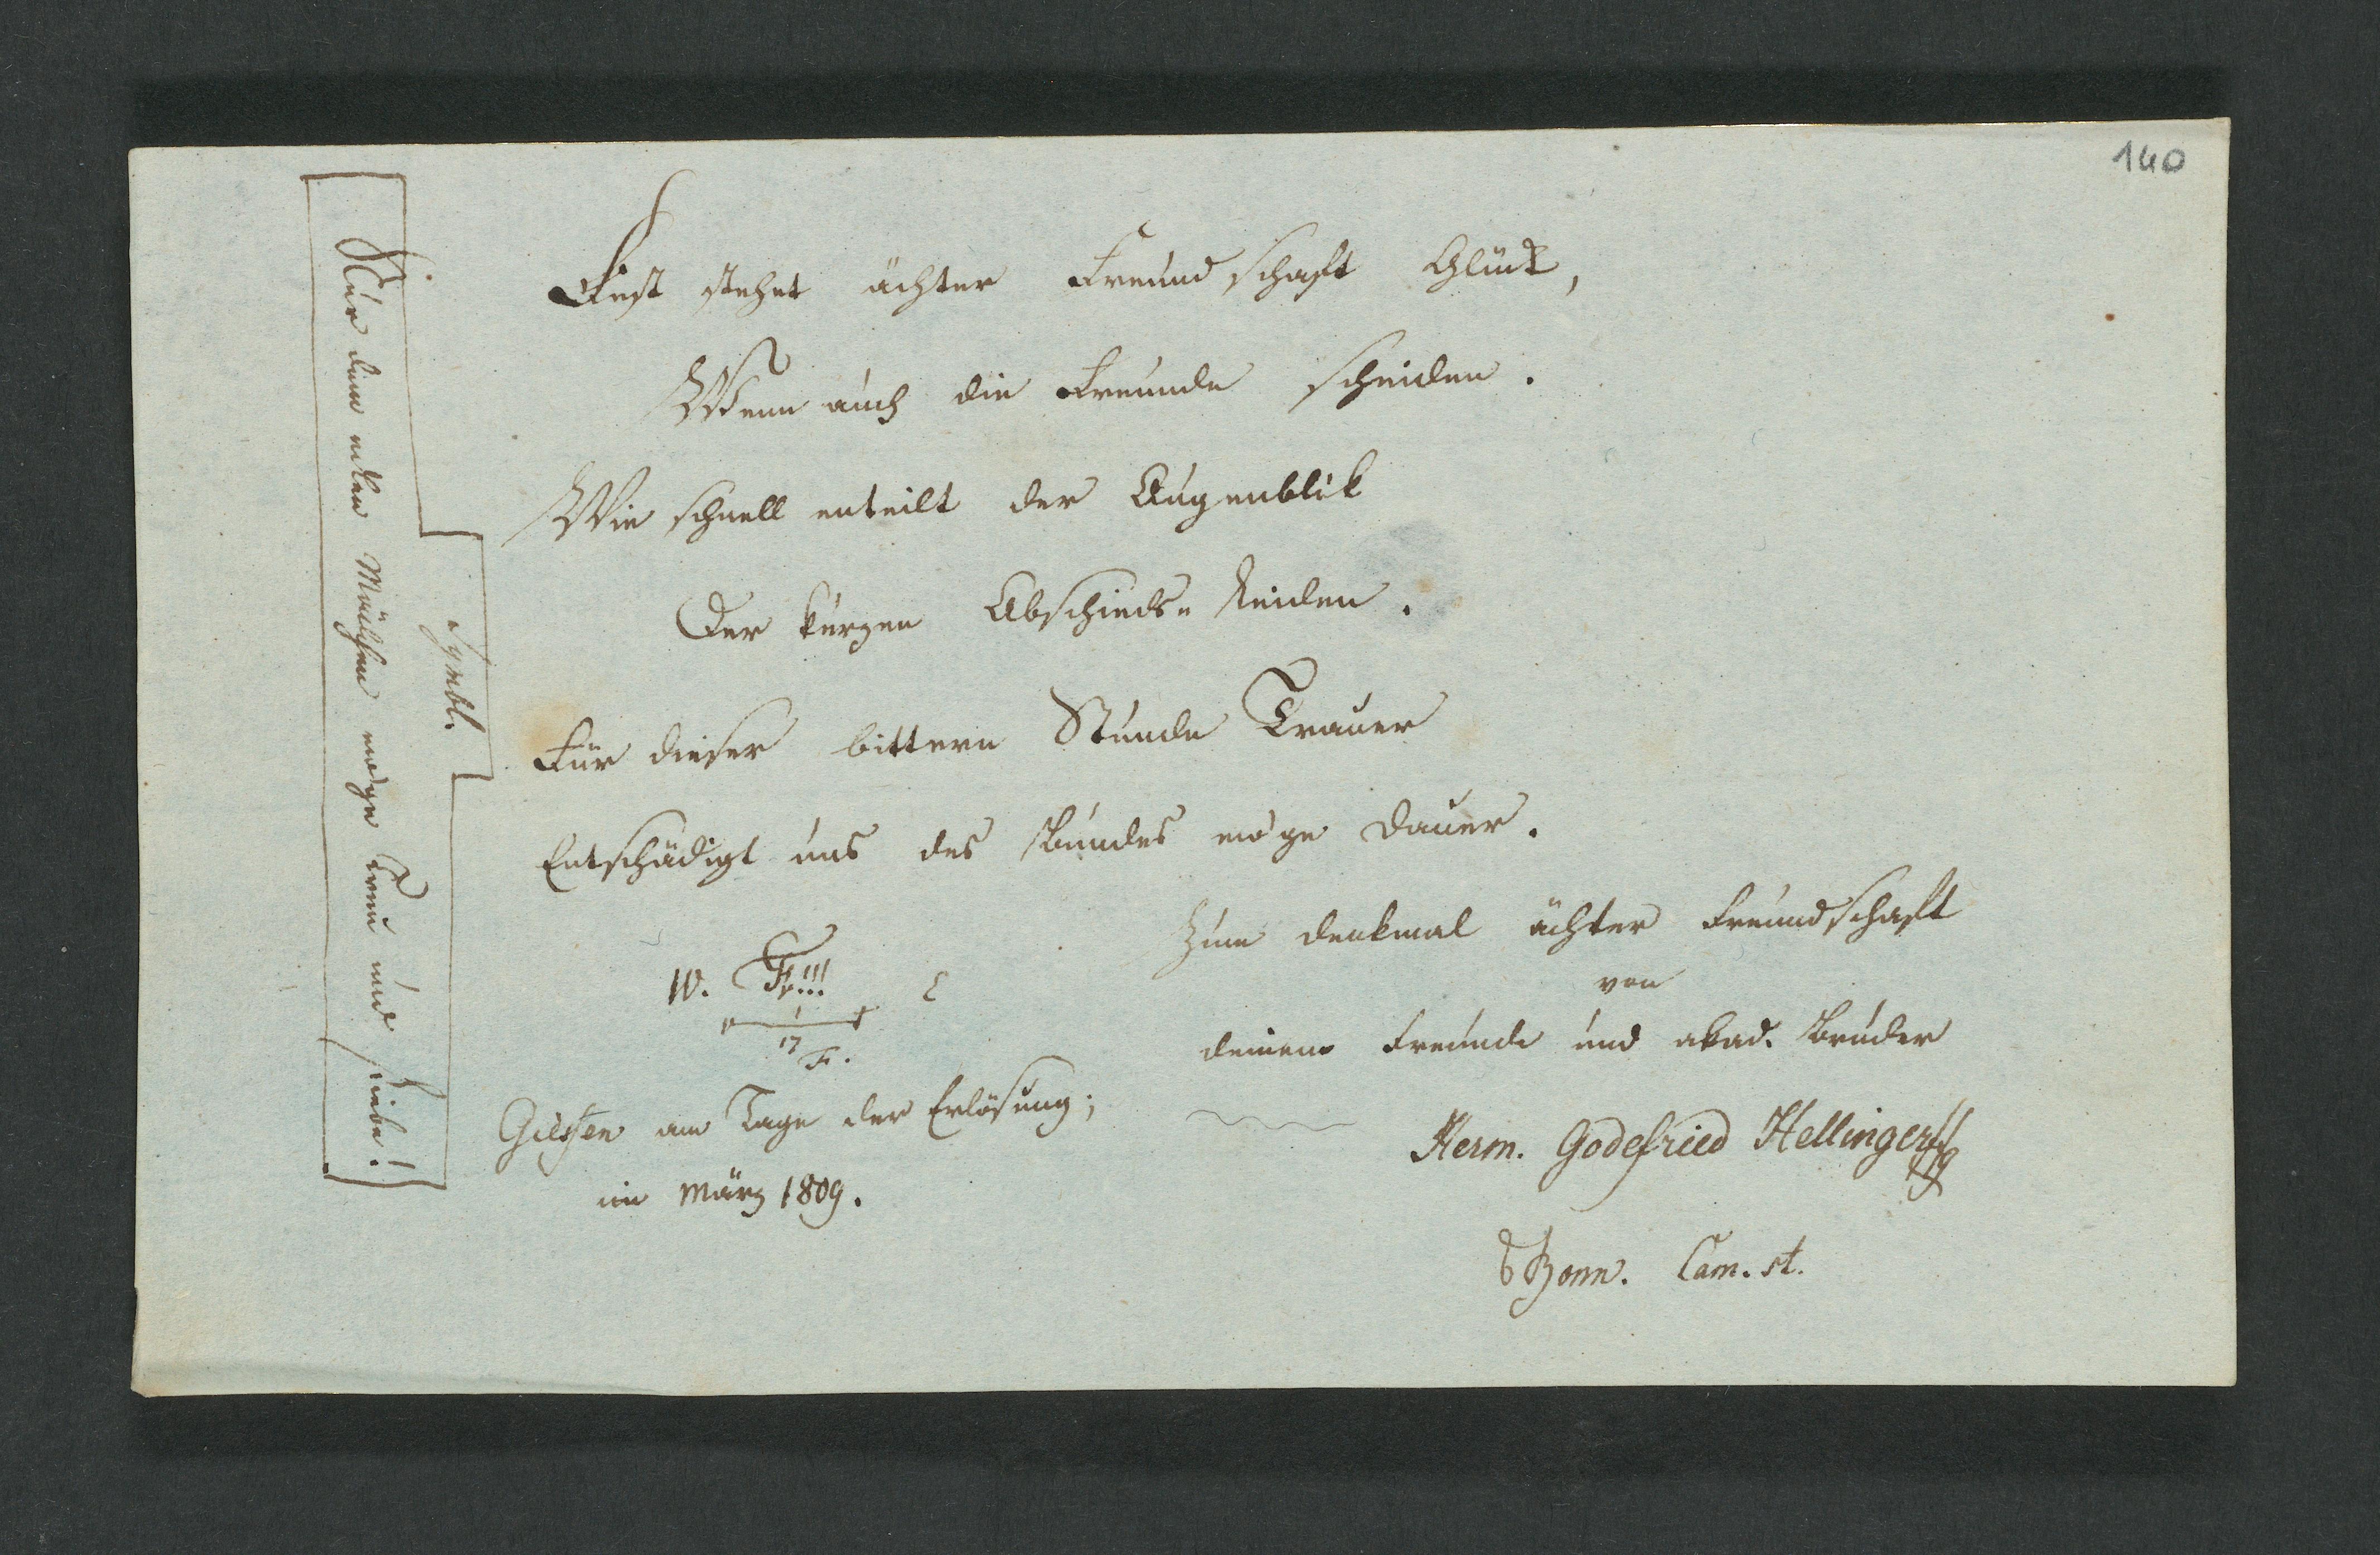 140
Fest stehet ächter Freundschaft Glück,
Wenn auch die Freunde scheiden.
Wie schnell enteilt der Augenblik
Der kurzen Abschieds-Leiden.
Für dieser bittern Stunde Trauer
Entschädigt uns des Bundes ew'ge Dauer.
Zum Denkmal ächter Freundschaft
von
deinem Freunde und akad. Bruder
Herm. Godefried Hellinger
Bonn. Cam. st.
W. Fr!!!
17
F.
Giessen am Tage der Erlösung;
im März 1809.
Symbl.
Nur dem edlen Mädchen ewge Treu und Liebe!